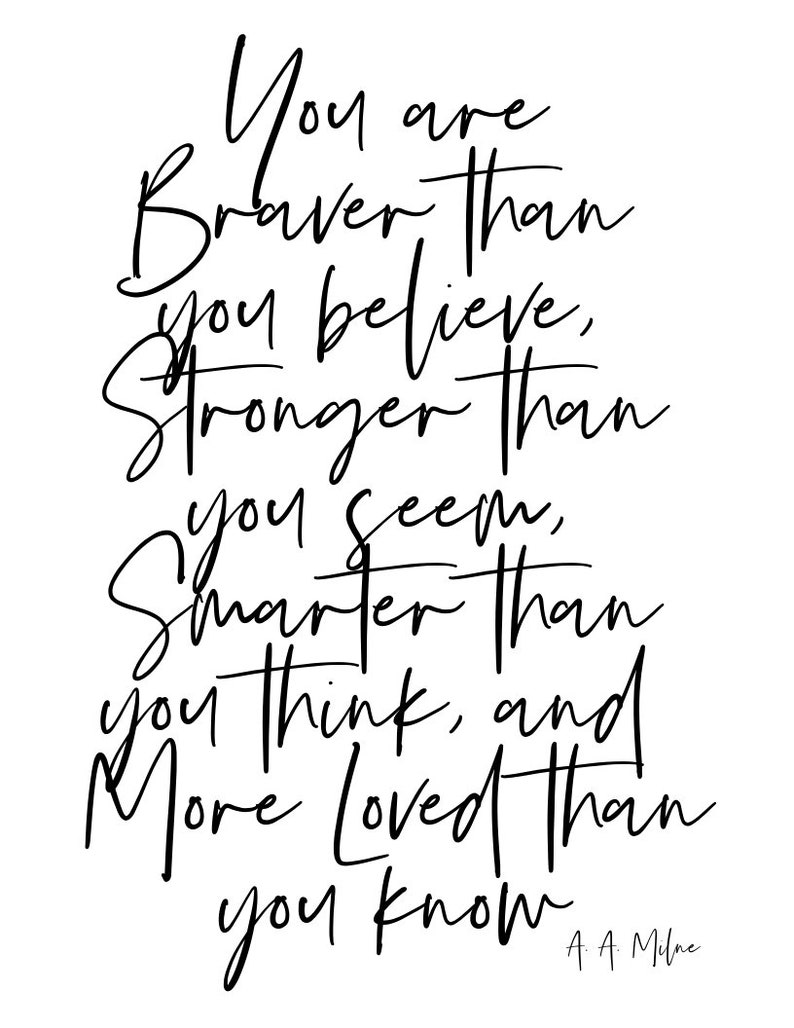 You are
Braver than
you believe,
Stronger than
you seem,
Smarter than
you think, and
More Loved than
you know
A. A. Milne